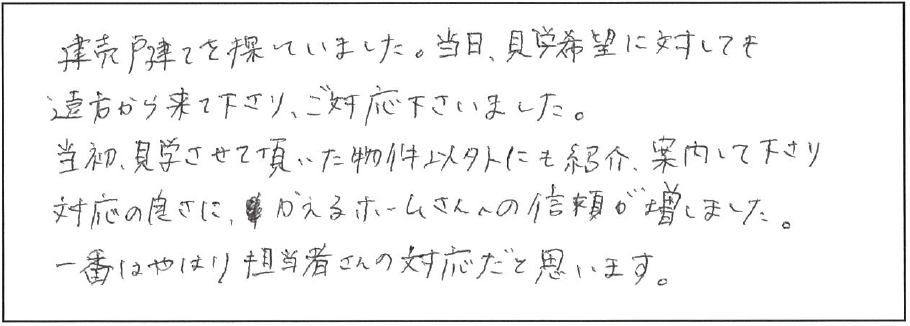 建売戸建てを探していました。当日、見学希望に対しても
遠方から来て下さり、ご対応下さいました。
当初、見学させて頂いた物件以外にも紹介、案内して下さり
対応の良さに、かえるホームさんへの信頼が増しました。
一番はやはり担当者さんの対応だと思います。